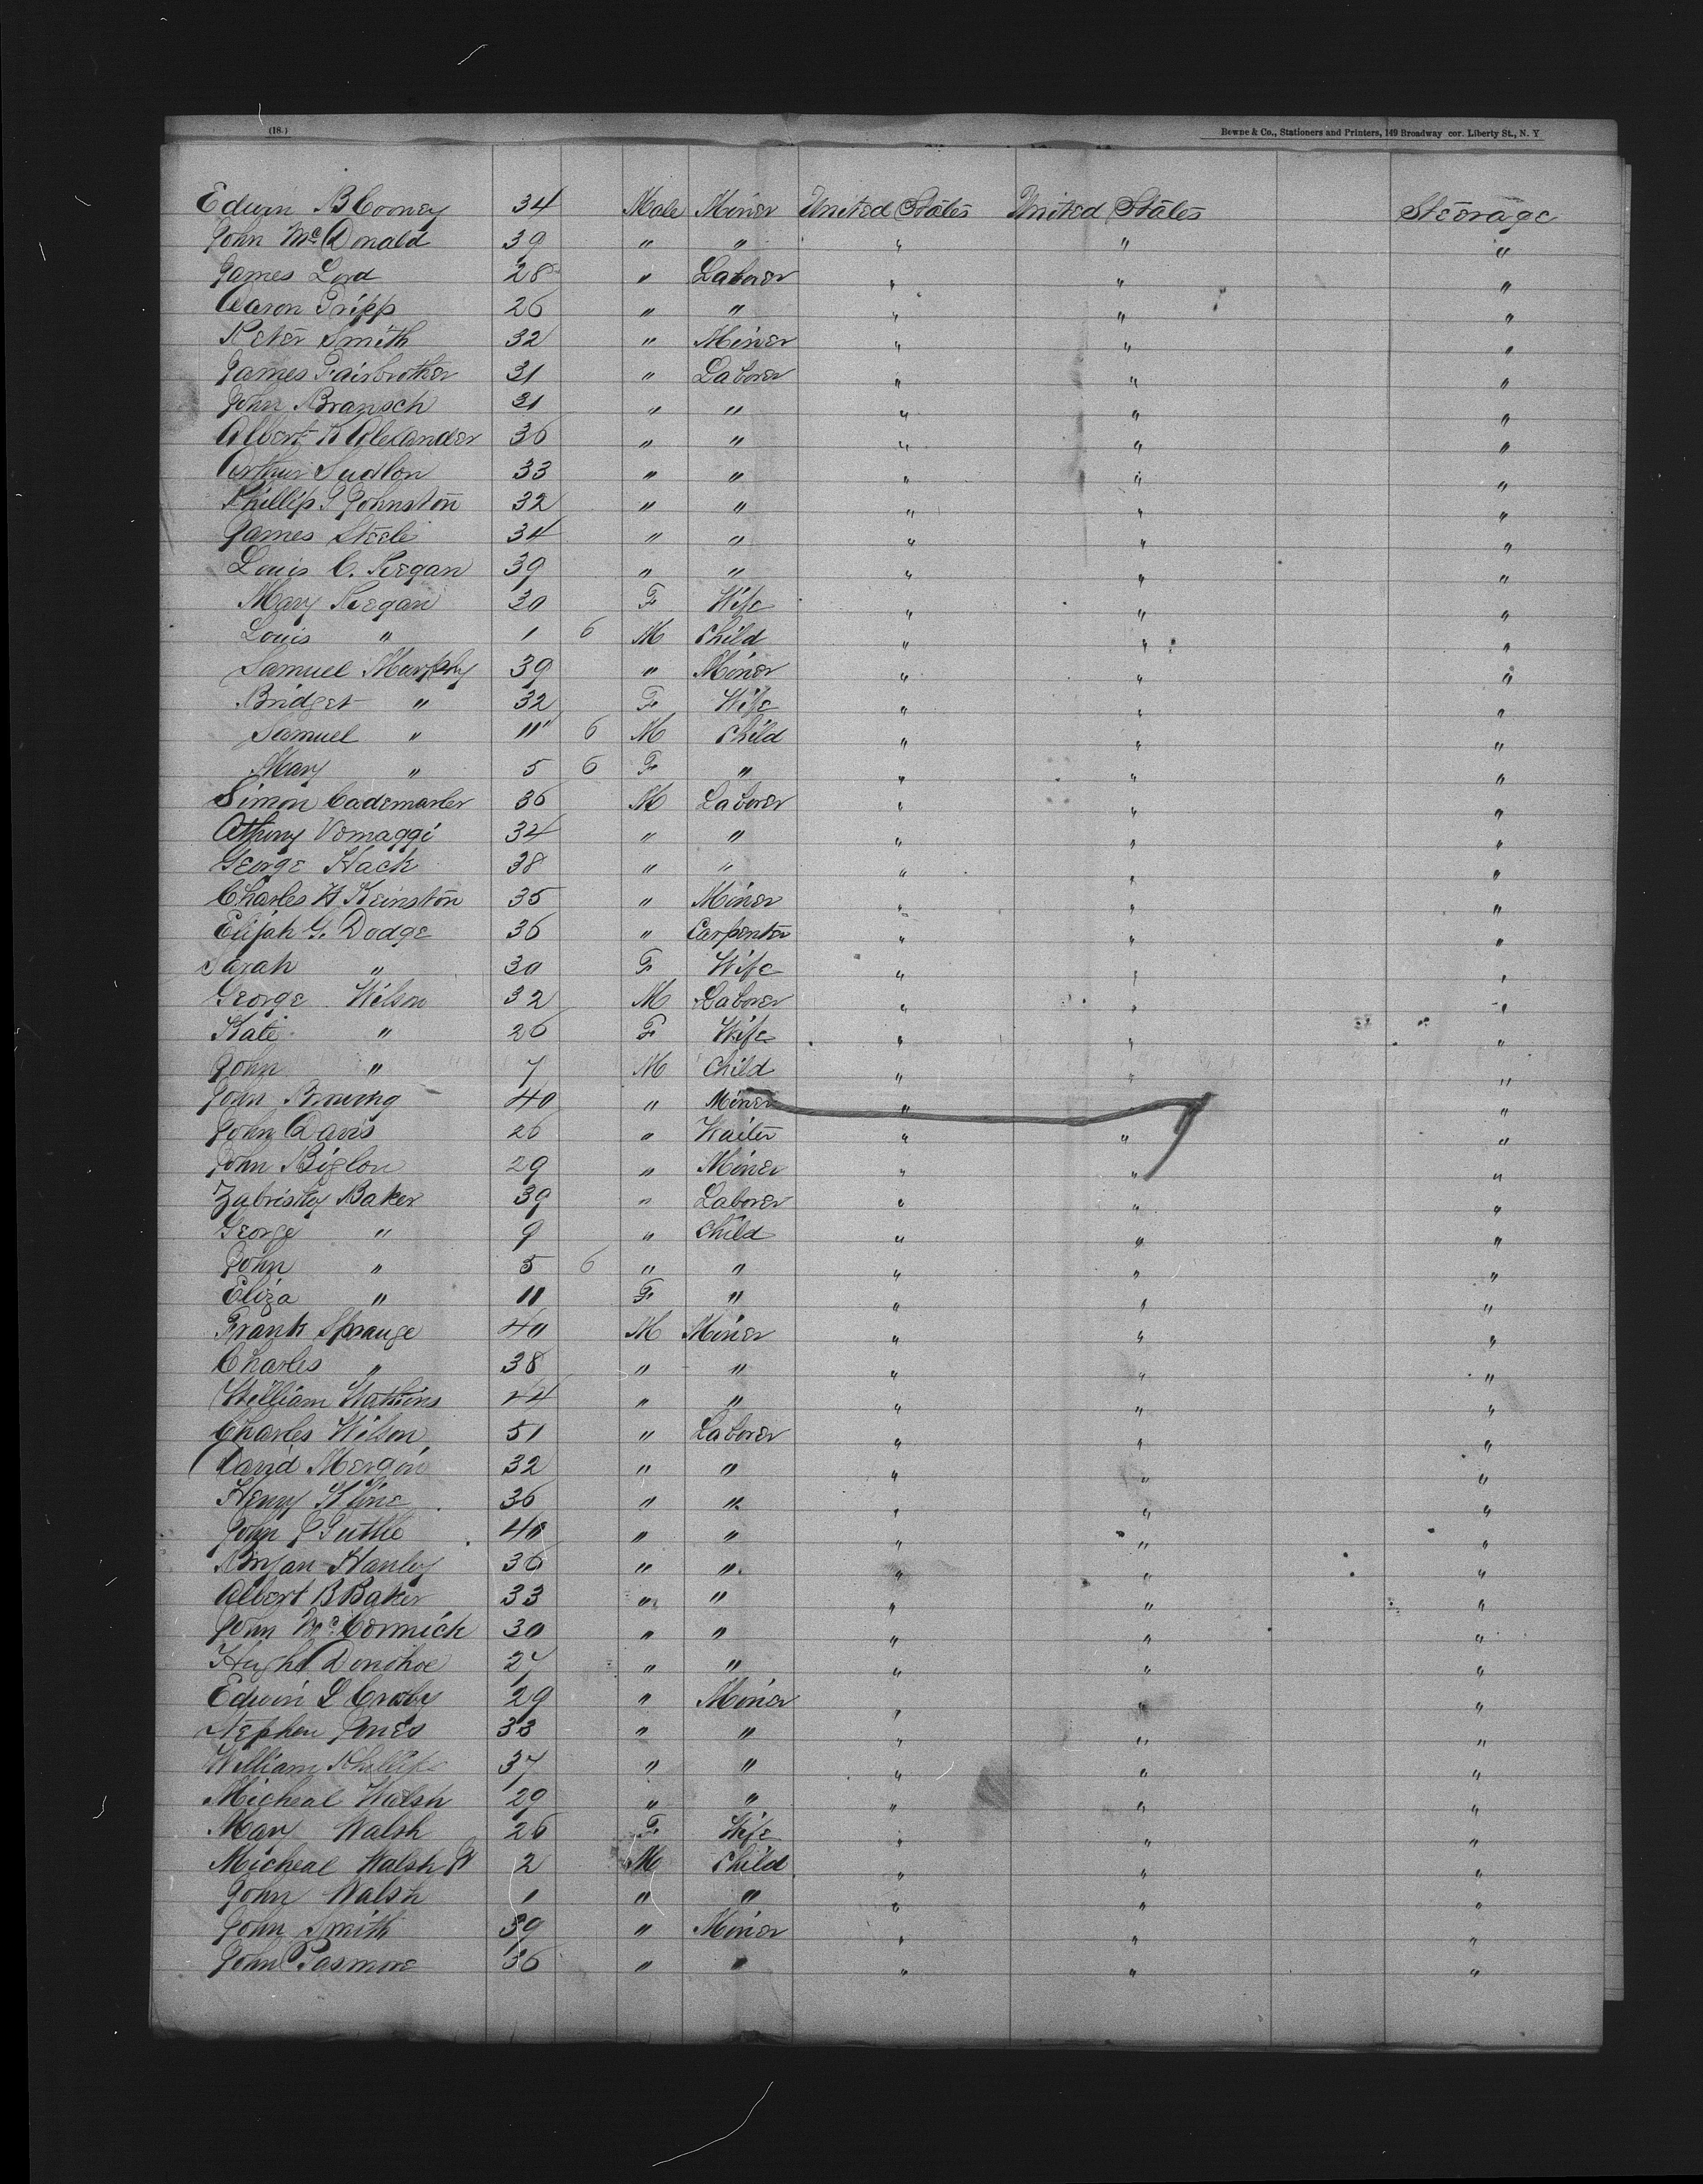 (18.) Bewne & Co., Stationers and Printers, 149 Broadway cor. Liberty St., N. Y
Edwin B Cooney 34 Male Miner United States United States Steerage
John McDonald 39 " " " " "
James Lord 28 " Laborer " " "
Aaron Tripp 26 " " " " "
Peter Smith 32 " Miner " " "
James Fairbrother 31 " Laborer " " "
John Bransch 31 " " " " "
Albert K Alexander 36 " " " " "
Arthur Sudlon 33 " " " " "
Phillip T Johnston 32 " " " " "
James Steele 34 " " " " "
Louis C. Regan 39 " " " " "
Mary Regan 30 F Wife " " "
Louis " 1 6 M Child " " "
Samuel Murphy 39 " Miner " " "
Bridget " 32 F Wife " " "
Samuel " 11 6 M Child " " "
Mary " 5 6 F " " " "
Simon 36 M Laborer " " "
34 " " " " "
George Hack 38 " " " " "
Charles H Keinston 35 " Miner " " "
Elijah G. Dodge 36 " Carpenter " " "
Sarah " 30 F Wife " " "
George Wilson 32 M Laborer " " "
Kate " 26 F Wife " " "
John " 7 M Child " " "
40 " Miner " " "
John Davis 26 " Waiter " " "
John Biglon 29 " Miner " " "
Zabrisky Baker 39 " Laborer " " "
George " 9 " Child " " "
John " 5 6 " " " " "
Eliza " 11 F " " " "
Frank Sprauge 40 M Miner " " "
Charles " 38 " " " " "
William Watkins 44 " " " " "
Charles Wilson 51 " Laborer " " "
David Mergon 32 " " " " "
Henry Kline 36 " " " " "
John 40 " " " " "
Bryan Hanley 36 " " " " "
Albert B Baker 33 " " " " "
John McCormick 30 " " " " "
Hugh Donohoe 27 " " " " "
Edwin L Craby 29 " Miner " " "
Stephen Jones 33 " " " " "
William Phillips 37 " " " " "
Micheal Walsh 29 " " " " "
Mary Walsh 26 F Wife " " "
Micheal Walsh Jr 2 M Child " " "
John Walsh 1 " " " " "
John Smith 39 " Miner " " "
John Pasmore 36 " " " " "